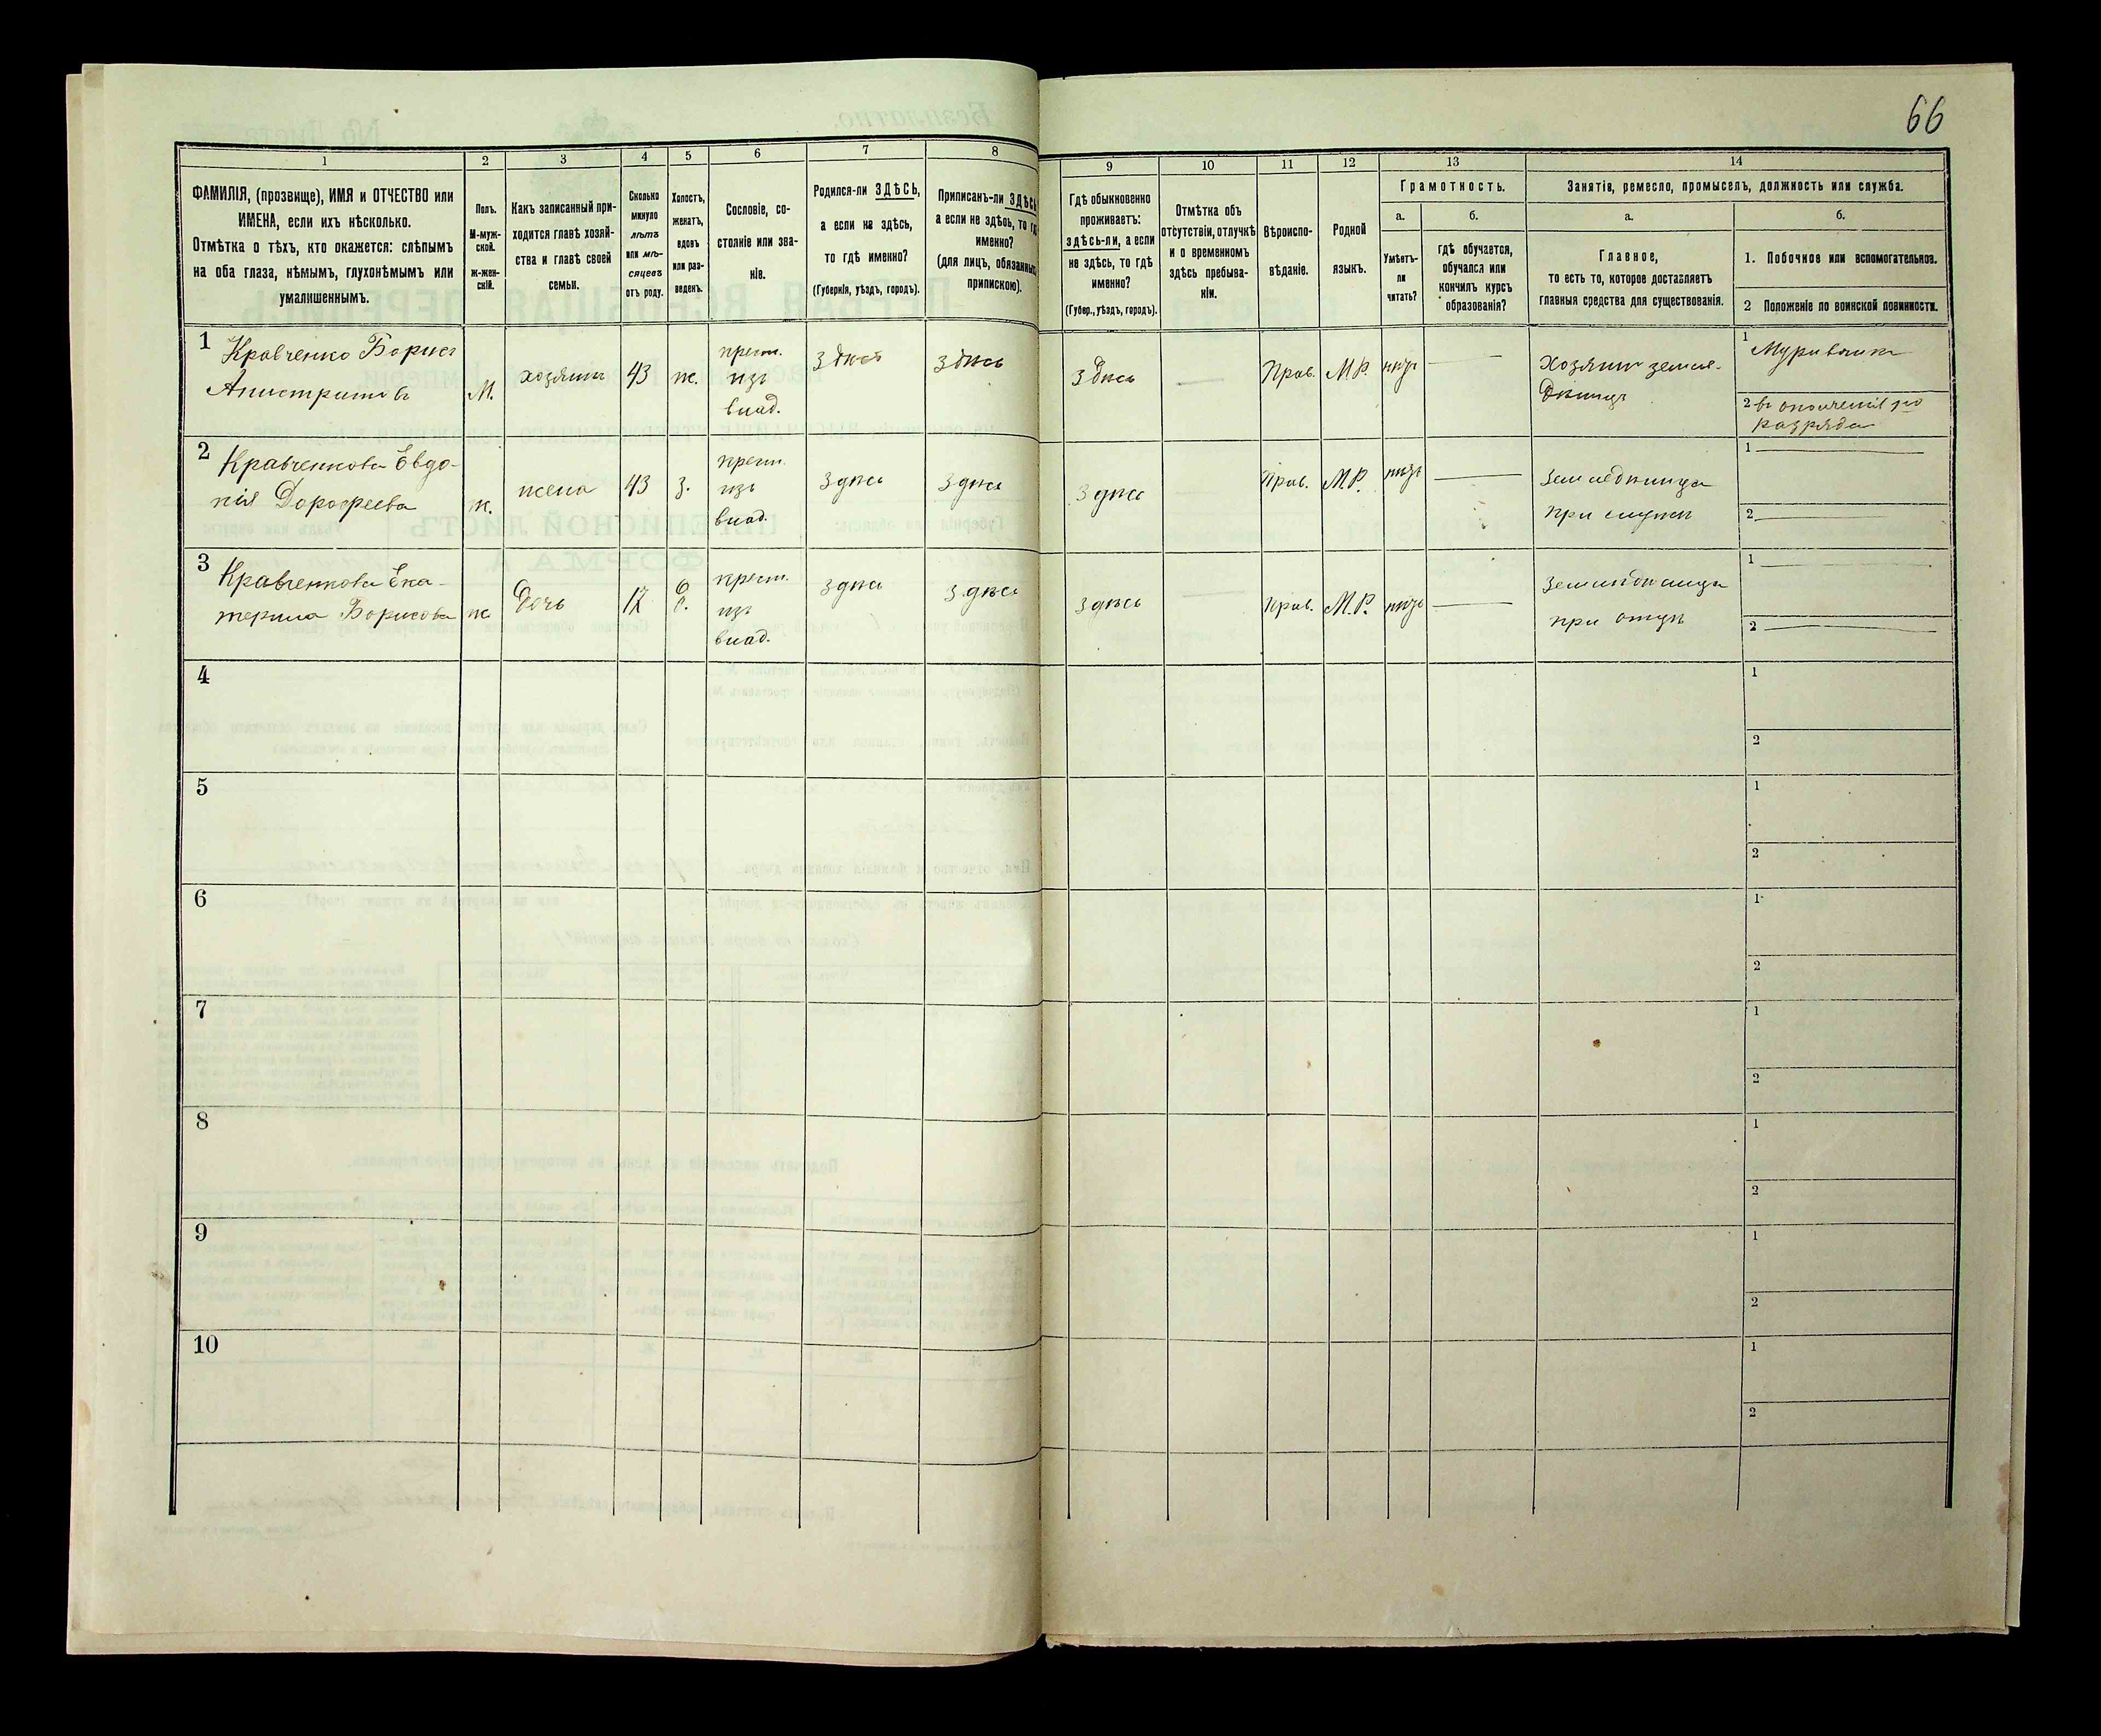 66
1 2 3 4 5 6 7 8 9 10 11 12 13 14
ФАМИЛІЯ, (прозвище), ИМЯ и ОТЧЕСТВО или
ИМЕНА, если ихъ нѣсколько.
Отмѣтка о тѣхъ, кто окажется: слѣпымъ
на оба глаза, нѣмымъ, глухонѣмымъ или
умалишеннымъ.
Полъ.
М-муж-
ской.
Ж-жен-
скій.
Какъ записанный при-
ходится главѣ хозяй-
ства и главѣ своей
семьи.
Сколько
минуло
лѣтъ
или мѣ-
сяцевъ
отъ роду.
Холостъ,
женатъ,
вдовъ
или раз-
веденъ.
Сословіе, со-
стояніе или зва-
ніе.
Родился-ли ЗДѢСЬ,
а если не здѣсь,
то гдѣ именно?
(Губернія, уѣздъ, городъ).
Приписанъ-ли ЗДѢСЬ
а если не здѣсь, то гдѣ
именно?
(для лицъ, обязанныхъ
припискою).
Гдѣ обыкновенно
проживаетъ:
здѣсь-ли, а если
не здѣсь, то гдѣ
именно?
(Губер., уѣздъ, городъ).
Отмѣтка объ
отсутствіи, отлучкѣ
и о временномъ
здѣсь пребыва-
ніи.
Вѣроиспо-
вѣданіе.
Родной
языкъ.
Грамотность.
а.
Умѣетъ-
ли
читать?
б.
гдѣ обучается,
обучался или
кончилъ курсъ
образованія?
Занятія, ремесло, промыселъ, должность или служба.
а.
Главное,
то есть то, которое доставляетъ
главныя средства для существованія.
б.
1. Побочное или вспомогательное.
2 Положеніе по воинской повинности.
1 Кравченко Борисъ
М. хозяинъ 43 ж. крест.
изъ
влад.
здѣсь здѣсь здѣсь — Прав. М.Р. нѣтъ —
Хозяинъ земле-
дѣлецъ
1
2 въ ополченіе
разряда
2 Кравченкова Евдо-
кія Дорофеева
ж. жена 43 з. крест.
изъ
влад.
здѣсь здѣсь здѣсь — Прав. М.Р. нѣтъ —
Земледѣлица
при мужѣ
1 —
2 —
3 Кравченкова Ека-
терина Борисова
ж дочь 17 д. крест.
изъ
влад.
здѣсь здѣсь здѣсь — Прав. М.Р. нѣтъ —
Земледѣлица
при отцѣ
1 —
2 —
4
1
2
5
1
2
6
1
2
7
1
2
8
1
2
9
1
2
10
1
2